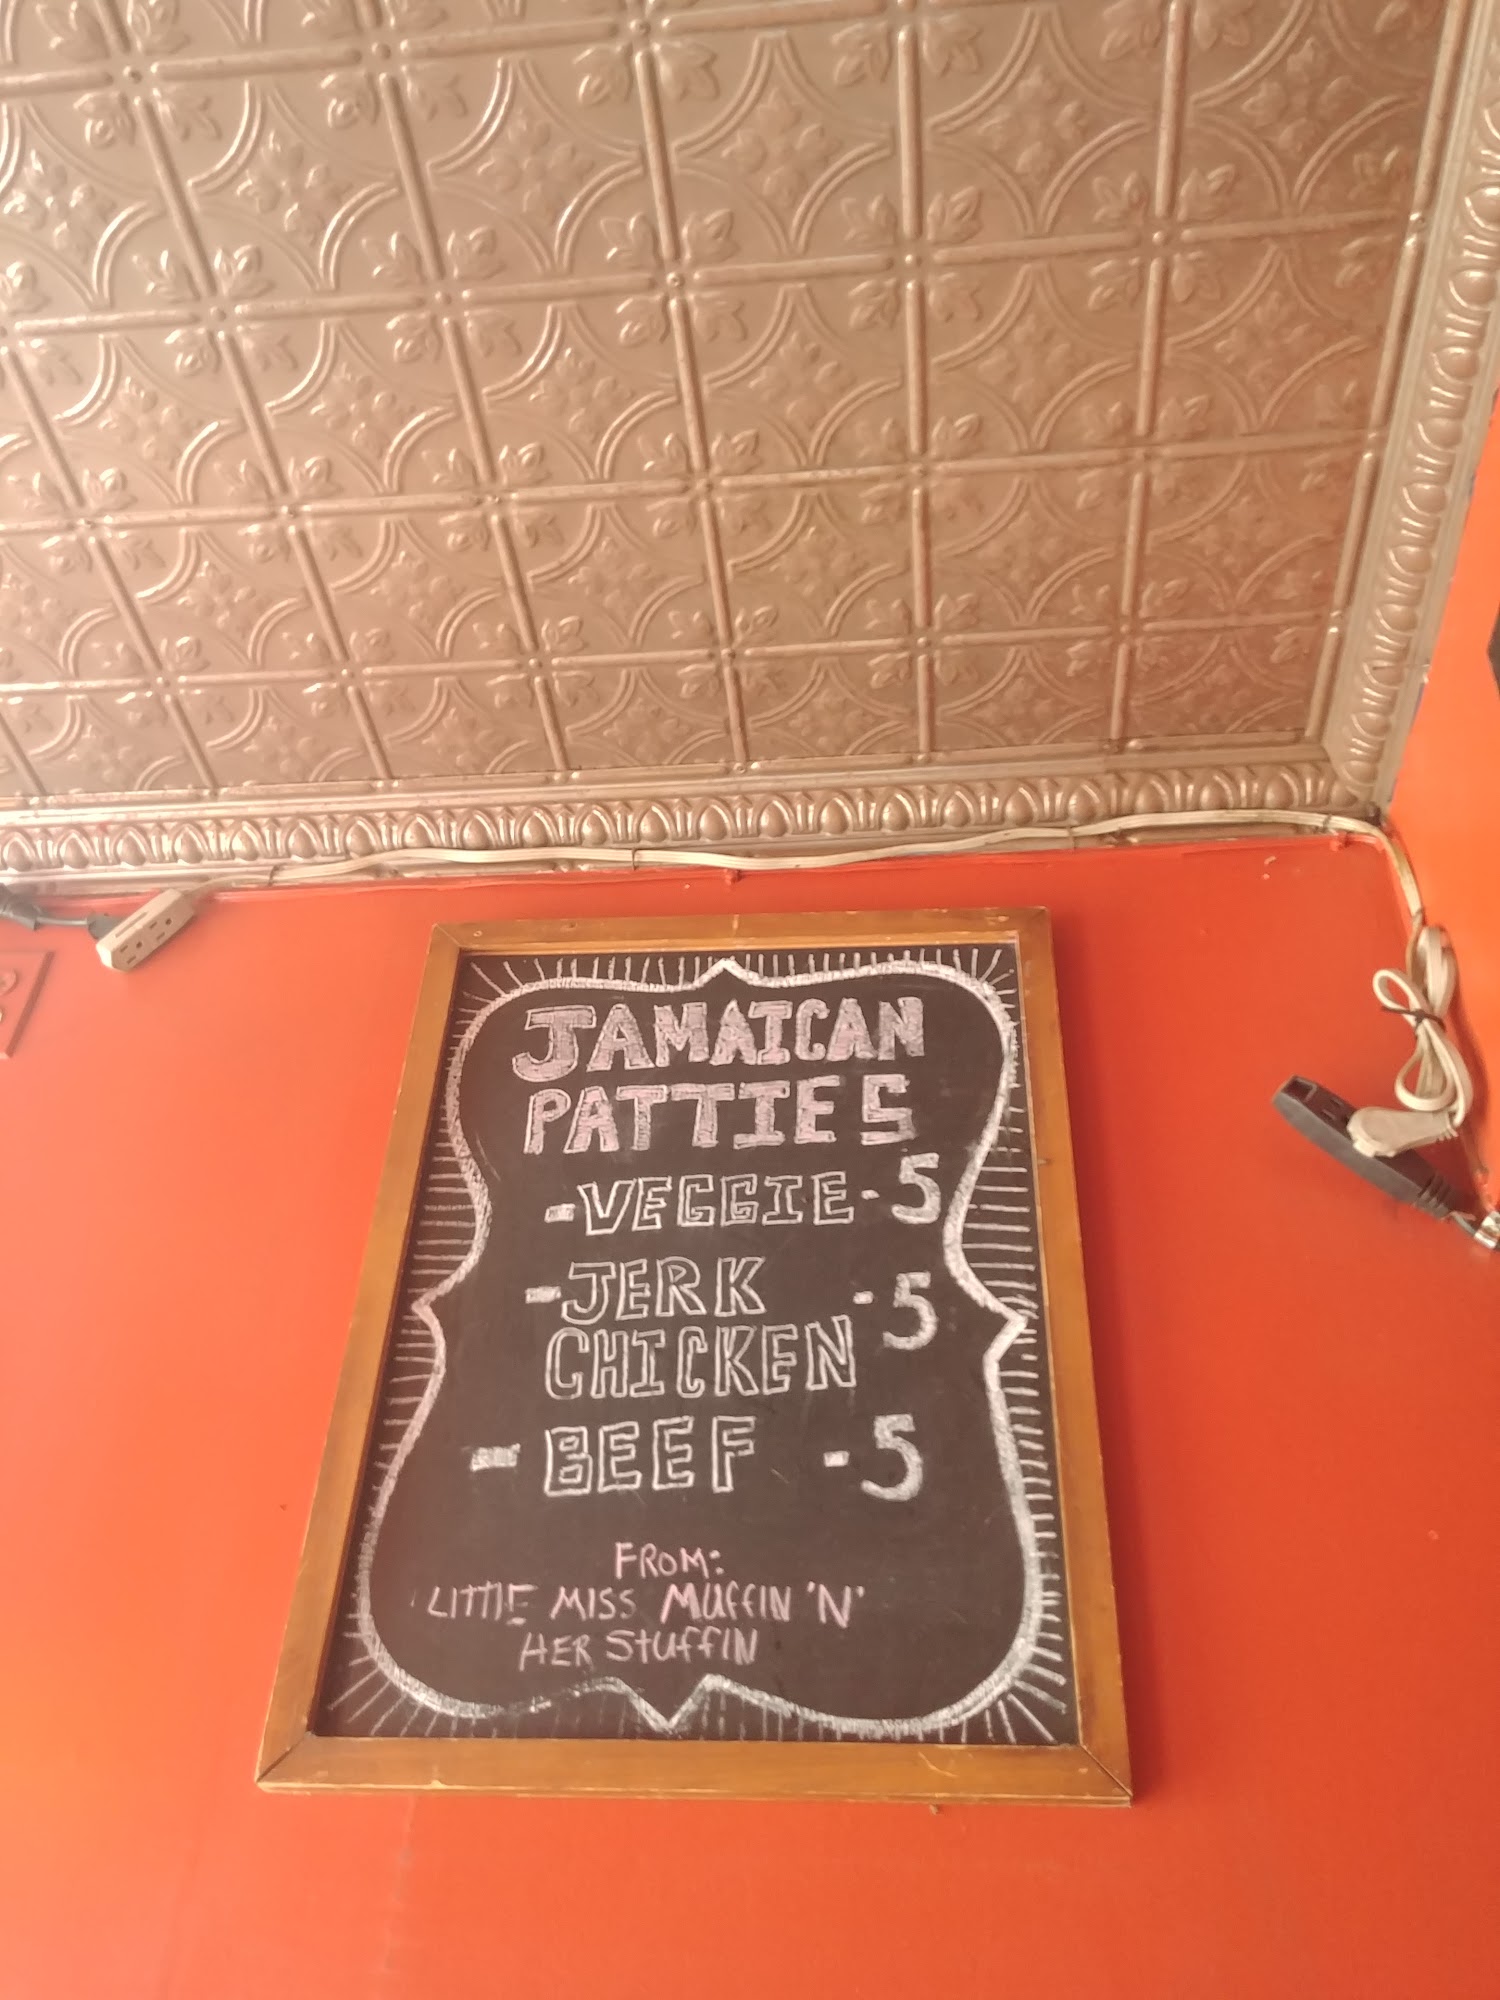 JAMAICAN
PATTIES
-VEGGIE-5
-JERK -5
CHICKEN
-BEEF -5
FROM:
LITTLE MISS MUFFIN 'N'
HER STUFFIN